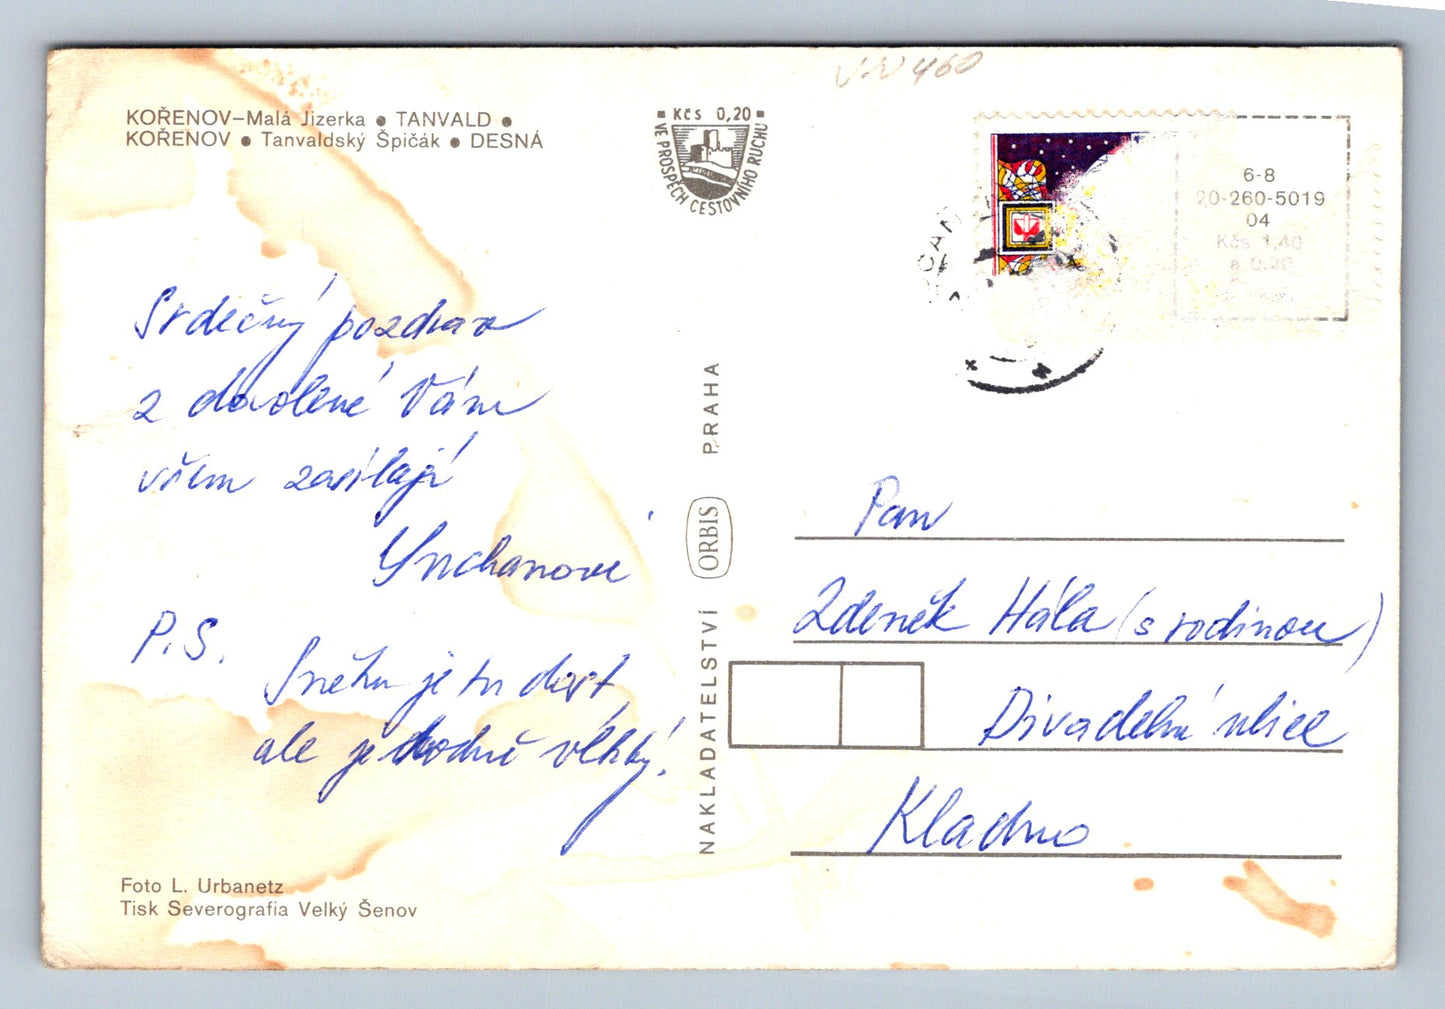 KOŘENOV–Malá Jizerka ● TANVALD ●
KOŘENOV ● Tanvaldský Špičák ● DESNÁ
Srdečný pozdrav
z dovolené Vám
všem zasílají
P.S.
Sněhu je tu dost
ale je hodně vlhký!
Foto L. Urbanetz
Tisk Severografia Velký Šenov
Kčs 0,20
VE PROSPĚCH CESTOVNÍHO RUCHU
NAKLADATELSTVÍ ORBIS PRAHA
460
6-8
20-260-5019
04
Kčs 1,40
a 0,20
Pan
Zdeněk Hála (s rodinou)
Divadelní ulice
Kladno